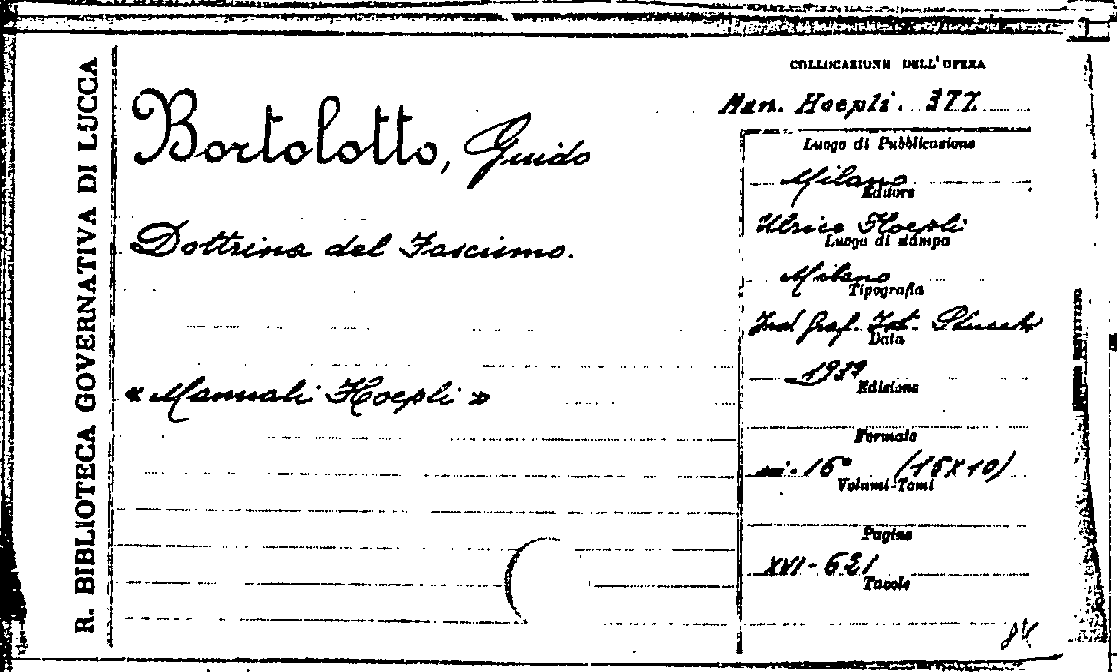 R. BIBLIOTECA GOVERNATIVA DI LUCCA
Bortolotto, Guido
Dottrina del Fascismo.
« Manuali Hoepli »
COLLOCAZIONE DELL'OPERA
Man. Hoepli. 377
Luogo di Pubblicazione
Milano
Editore
Ulrico Hoepli
Luogo di stampa
Milano
Tipografia
Ind Graf. It. Stucchi
Data
Edizione
Formato
in-16° (15X10)
Volumi-Tomi
Pagine
XVI-621
Tavole